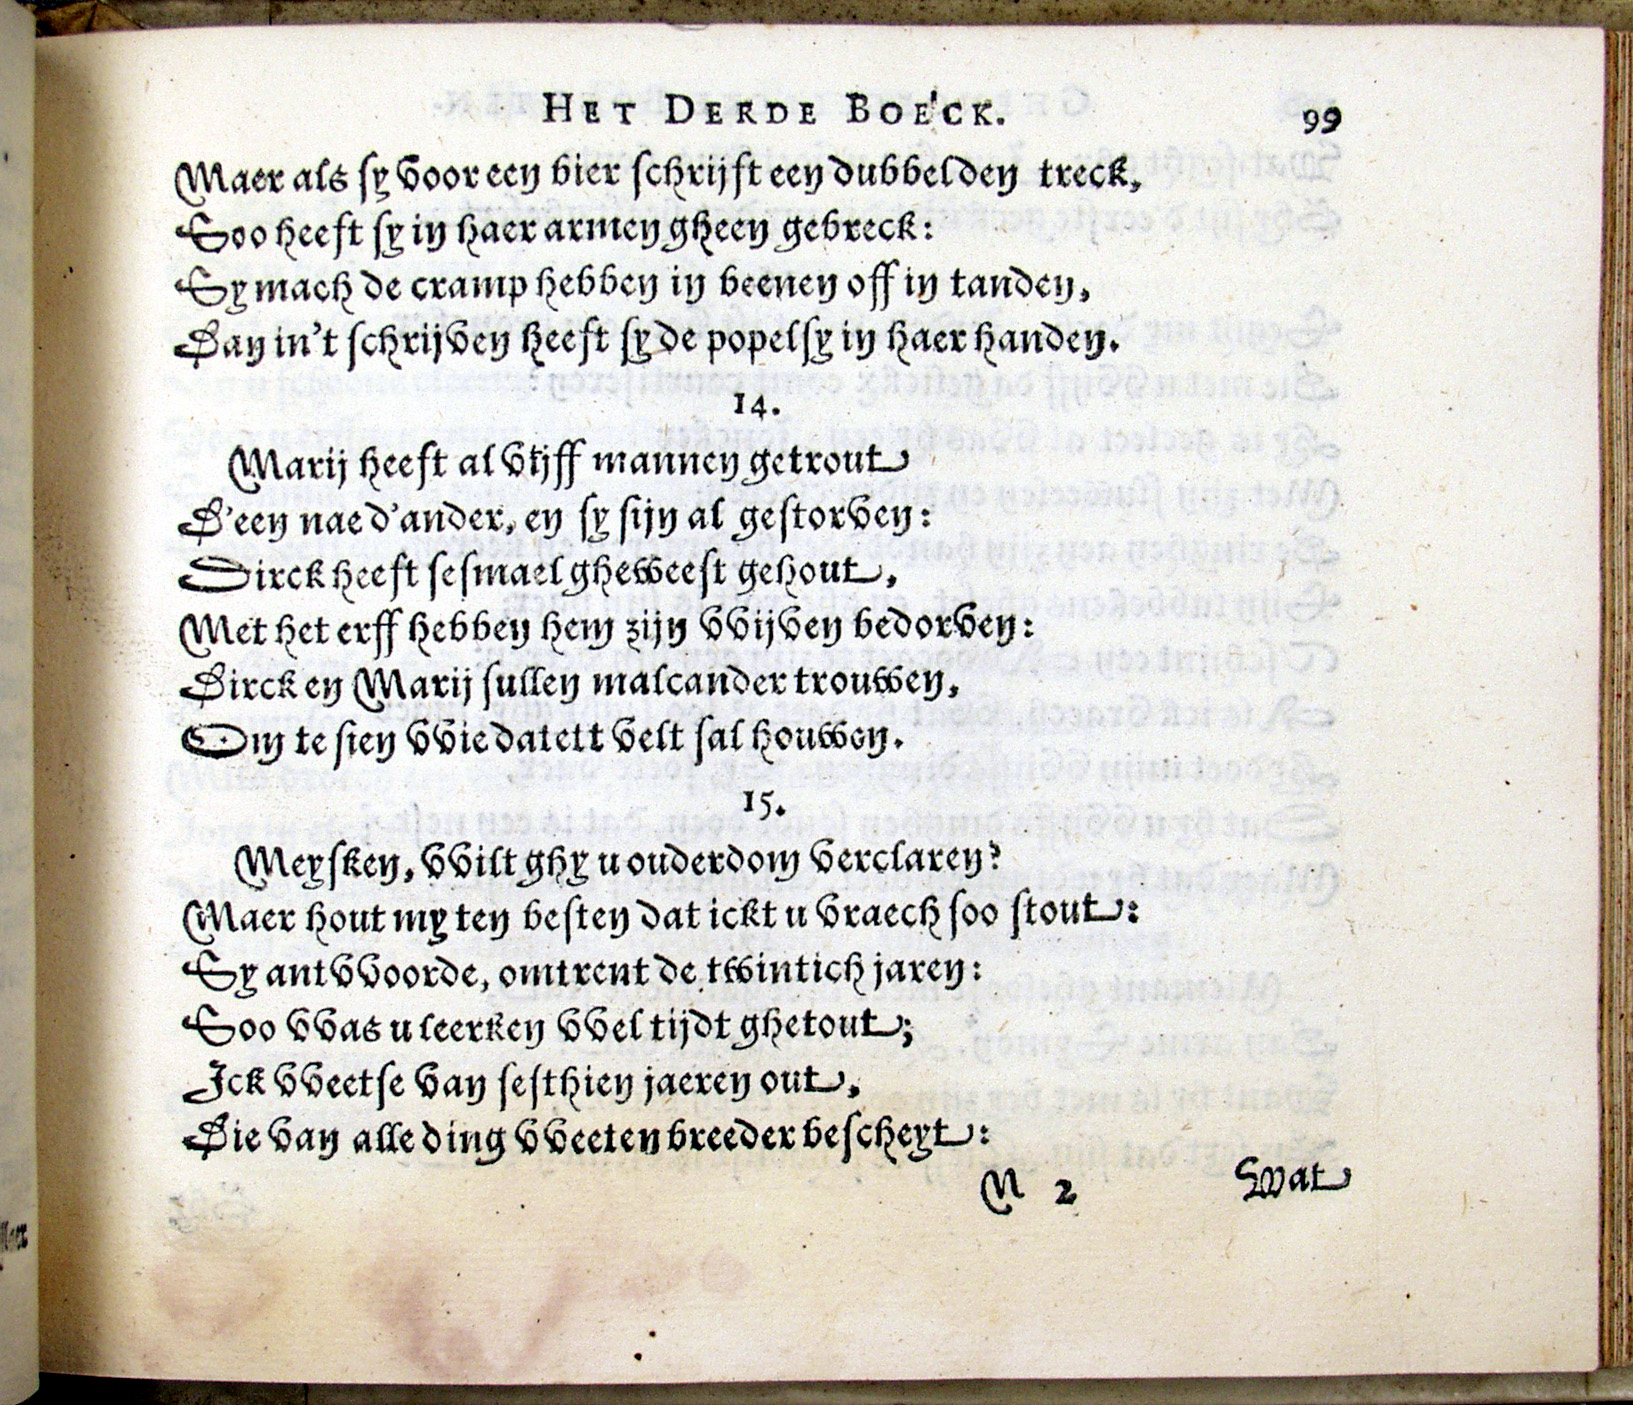 HET DERDE BOECK. 99
Maer als sy voor een bier schrijft een dubbelden treck,
Soo heeft sy in haer armen gheen gebreck:
Sy mach de cramp hebben in beenen off in tanden,
Dan in't schrijven heeft sy de popelsy in haer handen.
14.
Marij heeft al vijff mannen getrout
D'een nae d'ander, en sy sijn al gestorven:
Dirck heeft sesmael gheweest gehout,
Met het erff hebben hem zijn vvijven bedorven:
Dirck en Marij sullen malcander trouwen,
Om te sien vvie datett velt sal houwen.
15.
Meysken, vvilt ghy u ouderdom verclaren?
Maer hout my ten besten dat ickt u vraech soo stout:
Sy antvvoorde, omtrent de twintich jaren:
Soo vvas u leerken vvel tijdt ghetout;
Ick vveetse van sesthien jaeren out,
Die van alle ding vveeten breeder bescheyt:
N 2 Wat